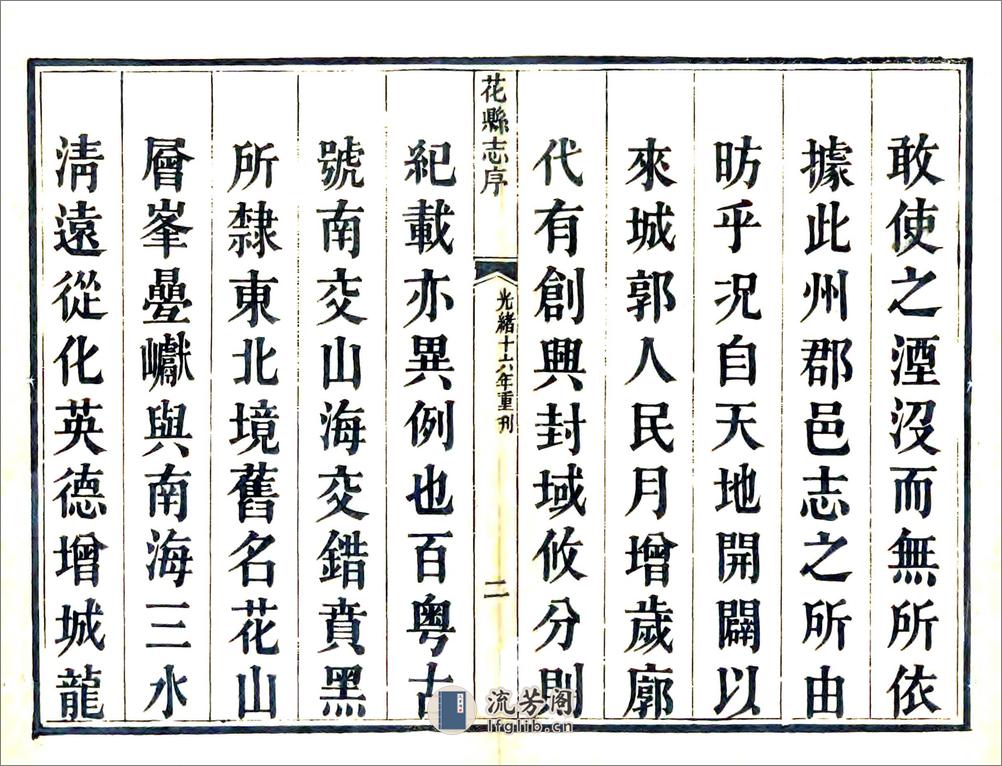 敢使之湮沒而無所依
據此州郡邑志之所由
昉乎况自天地開闢以
來城郭人民月增歲廓
代有創興封域攸分則
花縣志序
光緒十六年重刊
二
紀載亦異例也百粤古
號南交山海交錯賁黑
所隸東北境舊名花山
層峯疊巘與南海三水
淸遠從化英德增城龍
流芳阁
lfglib.cn